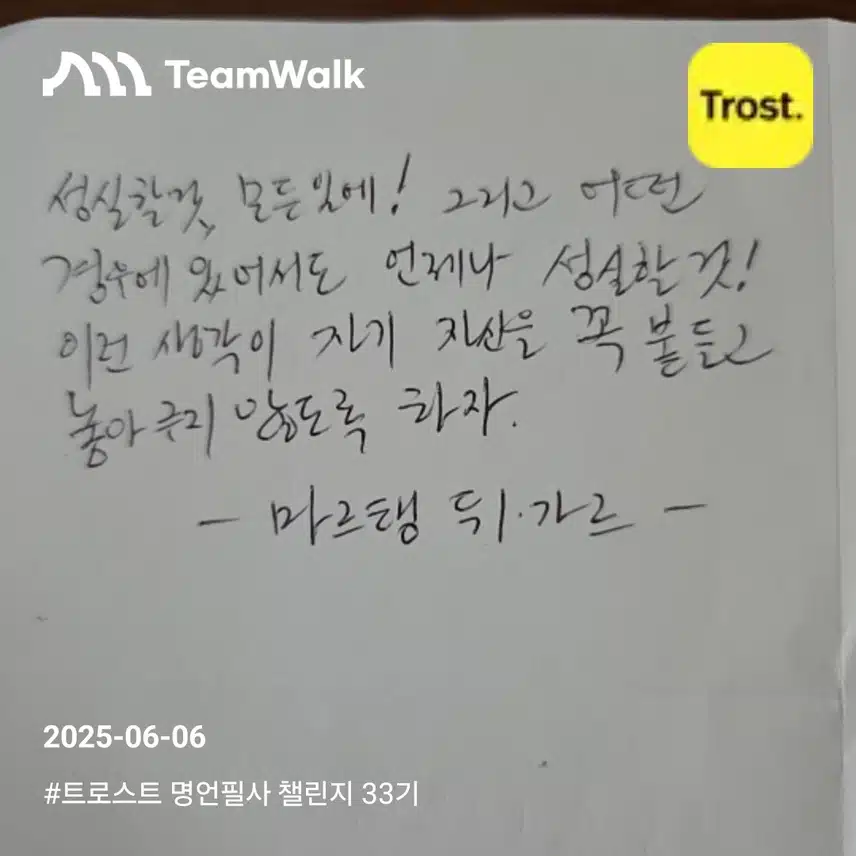 TeamWalk
Trost.
성실할것, 모든일에! 그리고 어떤
경우에 있어서도 언제나 성실할 것!
이런 생각이 자기 자신을 꼭 붙들고
놓아주지 않도록 하자.
- 마르탱 뒤·가르 -
2025-06-06
#트로스트 명언필사 챌린지 33기